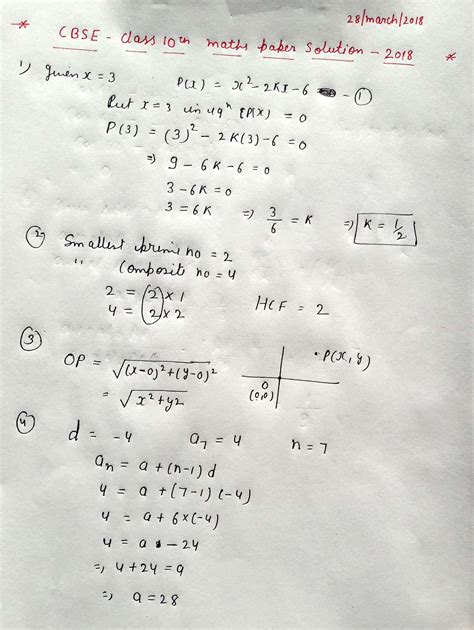 28/march/2018
* CBSE - class 10th maths paper solution - 2018 *
1) given x = 3    P(x) = x² - 2Kx - 6 - ①
Put x = 3 in P(x) = 0
P(3) = (3)² - 2K(3) - 6 = 0
⇒ 9 - 6K - 6 = 0
3 - 6K = 0
3 = 6K ⇒ 3/6 = K ⇒ K = 1/2
② Smallest prime no = 2
" Composite no = 4
2 = 2 × 1
4 = 2 × 2    HCF = 2
③
OP = √(x-0)²+(y-0)²    • P(x, y)
= √x² + y2    0
(0,0)
④
d = -4    a₇ = 4    n = 7
an = a + (n-1) d
4 = a + (7-1) (-4)
4 = a + 6×(-4)
4 = a - 24
⇒, 4 + 24 = a
⇒, a = 28